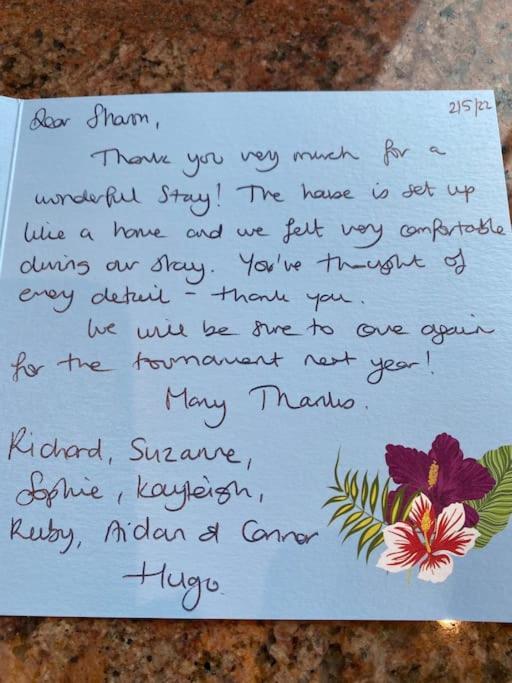 2/5/22
Dear Sharon,
Thank you very much for a
wonderful stay! The house is set up
like a home and we felt very comfortable
during our stay. You've thought of
every detail - thank you.
We will be sure to come again
for the tournament next year!
Many Thanks.
Richard, Suzanne,
Sophie, Kayleigh,
Ruby, Aidan & Connor
Hugo.